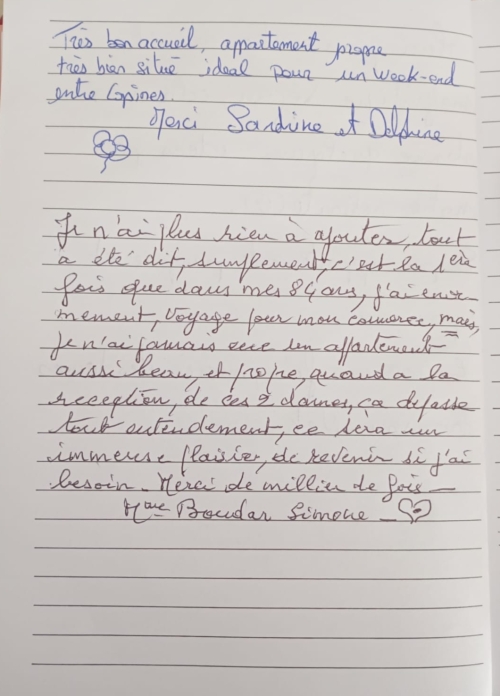 Très bon accueil, appartement propre
très bien situé ideal pour un week-end
entre Copines.
Merci Sandrine et Delphine
Je n'ai plus rien à ajouter, tout
a été dit, simplement, c'est la 1ère
fois que dans mes 84 ans, j'ai enor-
mement, voyage pour mon commerce, mais,
Je n'ai jamais vue un appartement
aussi beau, et propre, quand a la
reception, de ces 2 dames, ça depasse
tout entendement, ce sera un
immense plaisir, de revenir si j'ai
besoin - Merci de millier de fois -
Mme Boudar Simone -